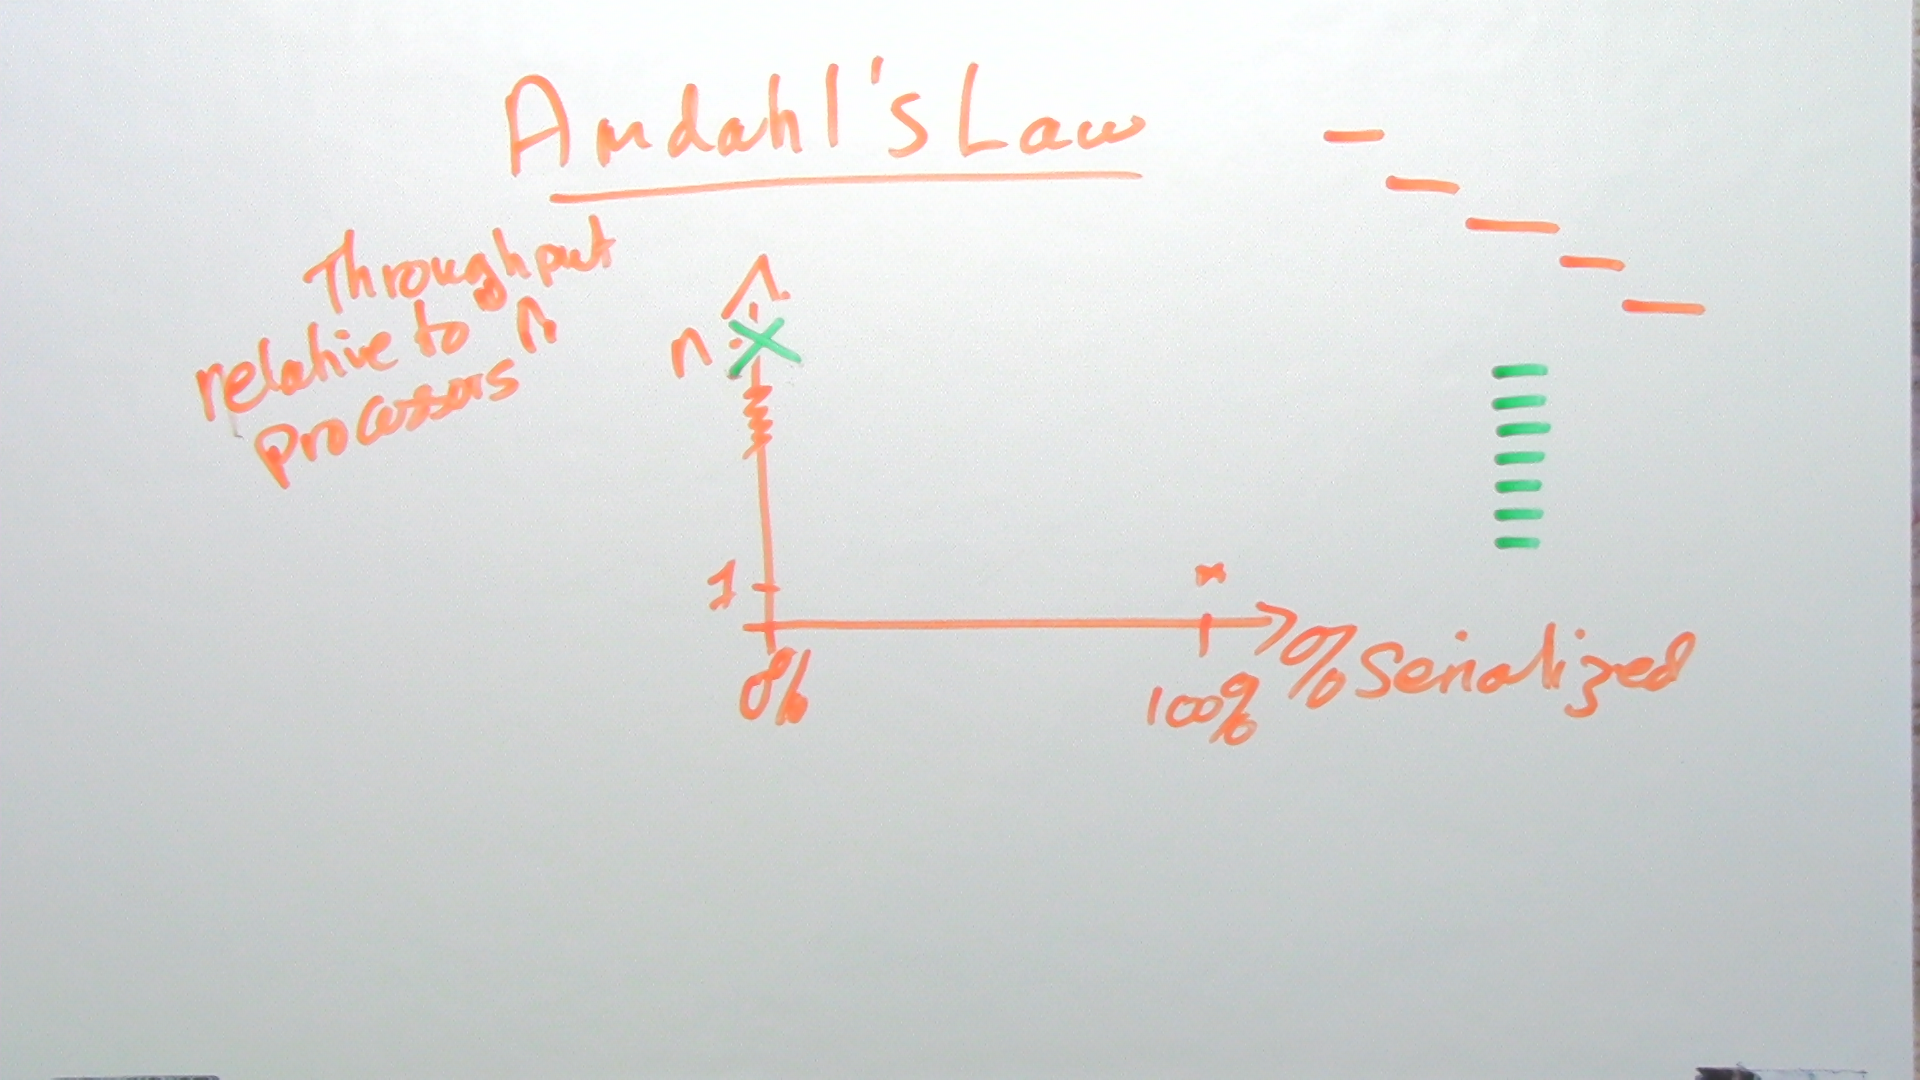 Amdahl's Law
Throughput
relative to n
processors
n
1
0%
100%
% Serialized